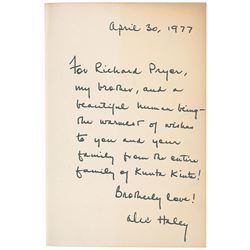 April 30, 1977
For Richard Pryer,
my brother, and a
beautiful human being—
the warmest of wishes
to you and your
family from the entire
family of Kunta Kinte!
Brotherly love!
Alex Haley